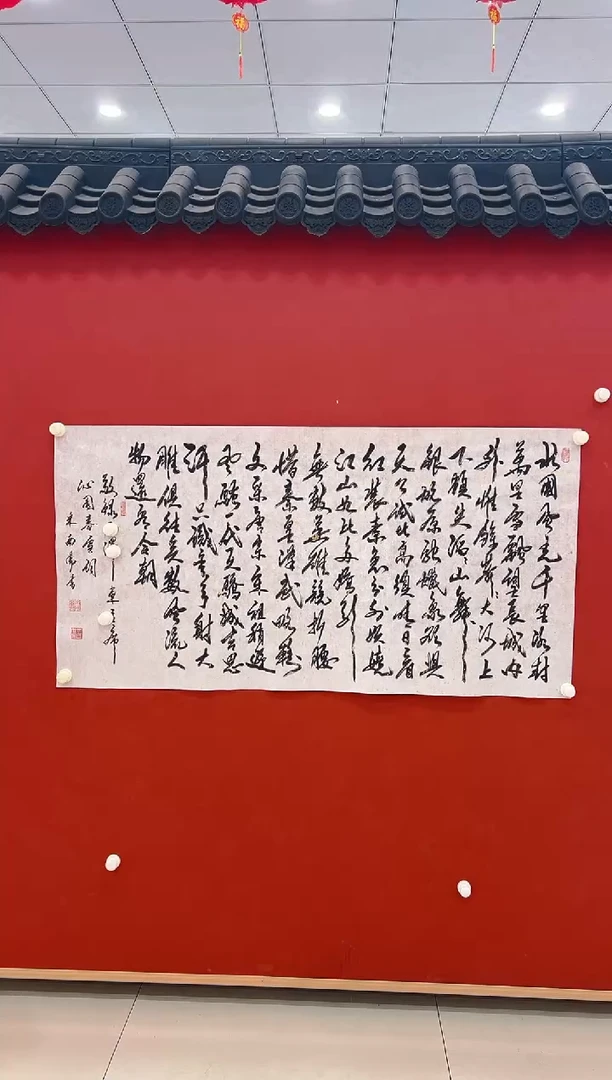 北國風光千里冰封
萬里雪飄望長城內
外惟餘莽莽大河上
下頓失滔滔山舞
銀蛇原馳蠟象欲與
天公試比高須晴日看
紅裝素裹分外妖嬈
江山如此多嬌引
無數英雄競折腰
惜秦皇漢武略輸
文采唐宗宋祖稍遜
風騷一代天驕成吉思
汗只識彎弓射大
雕俱往矣數風流人
物還看今朝
敬錄東主席
沁園春雪詞
書